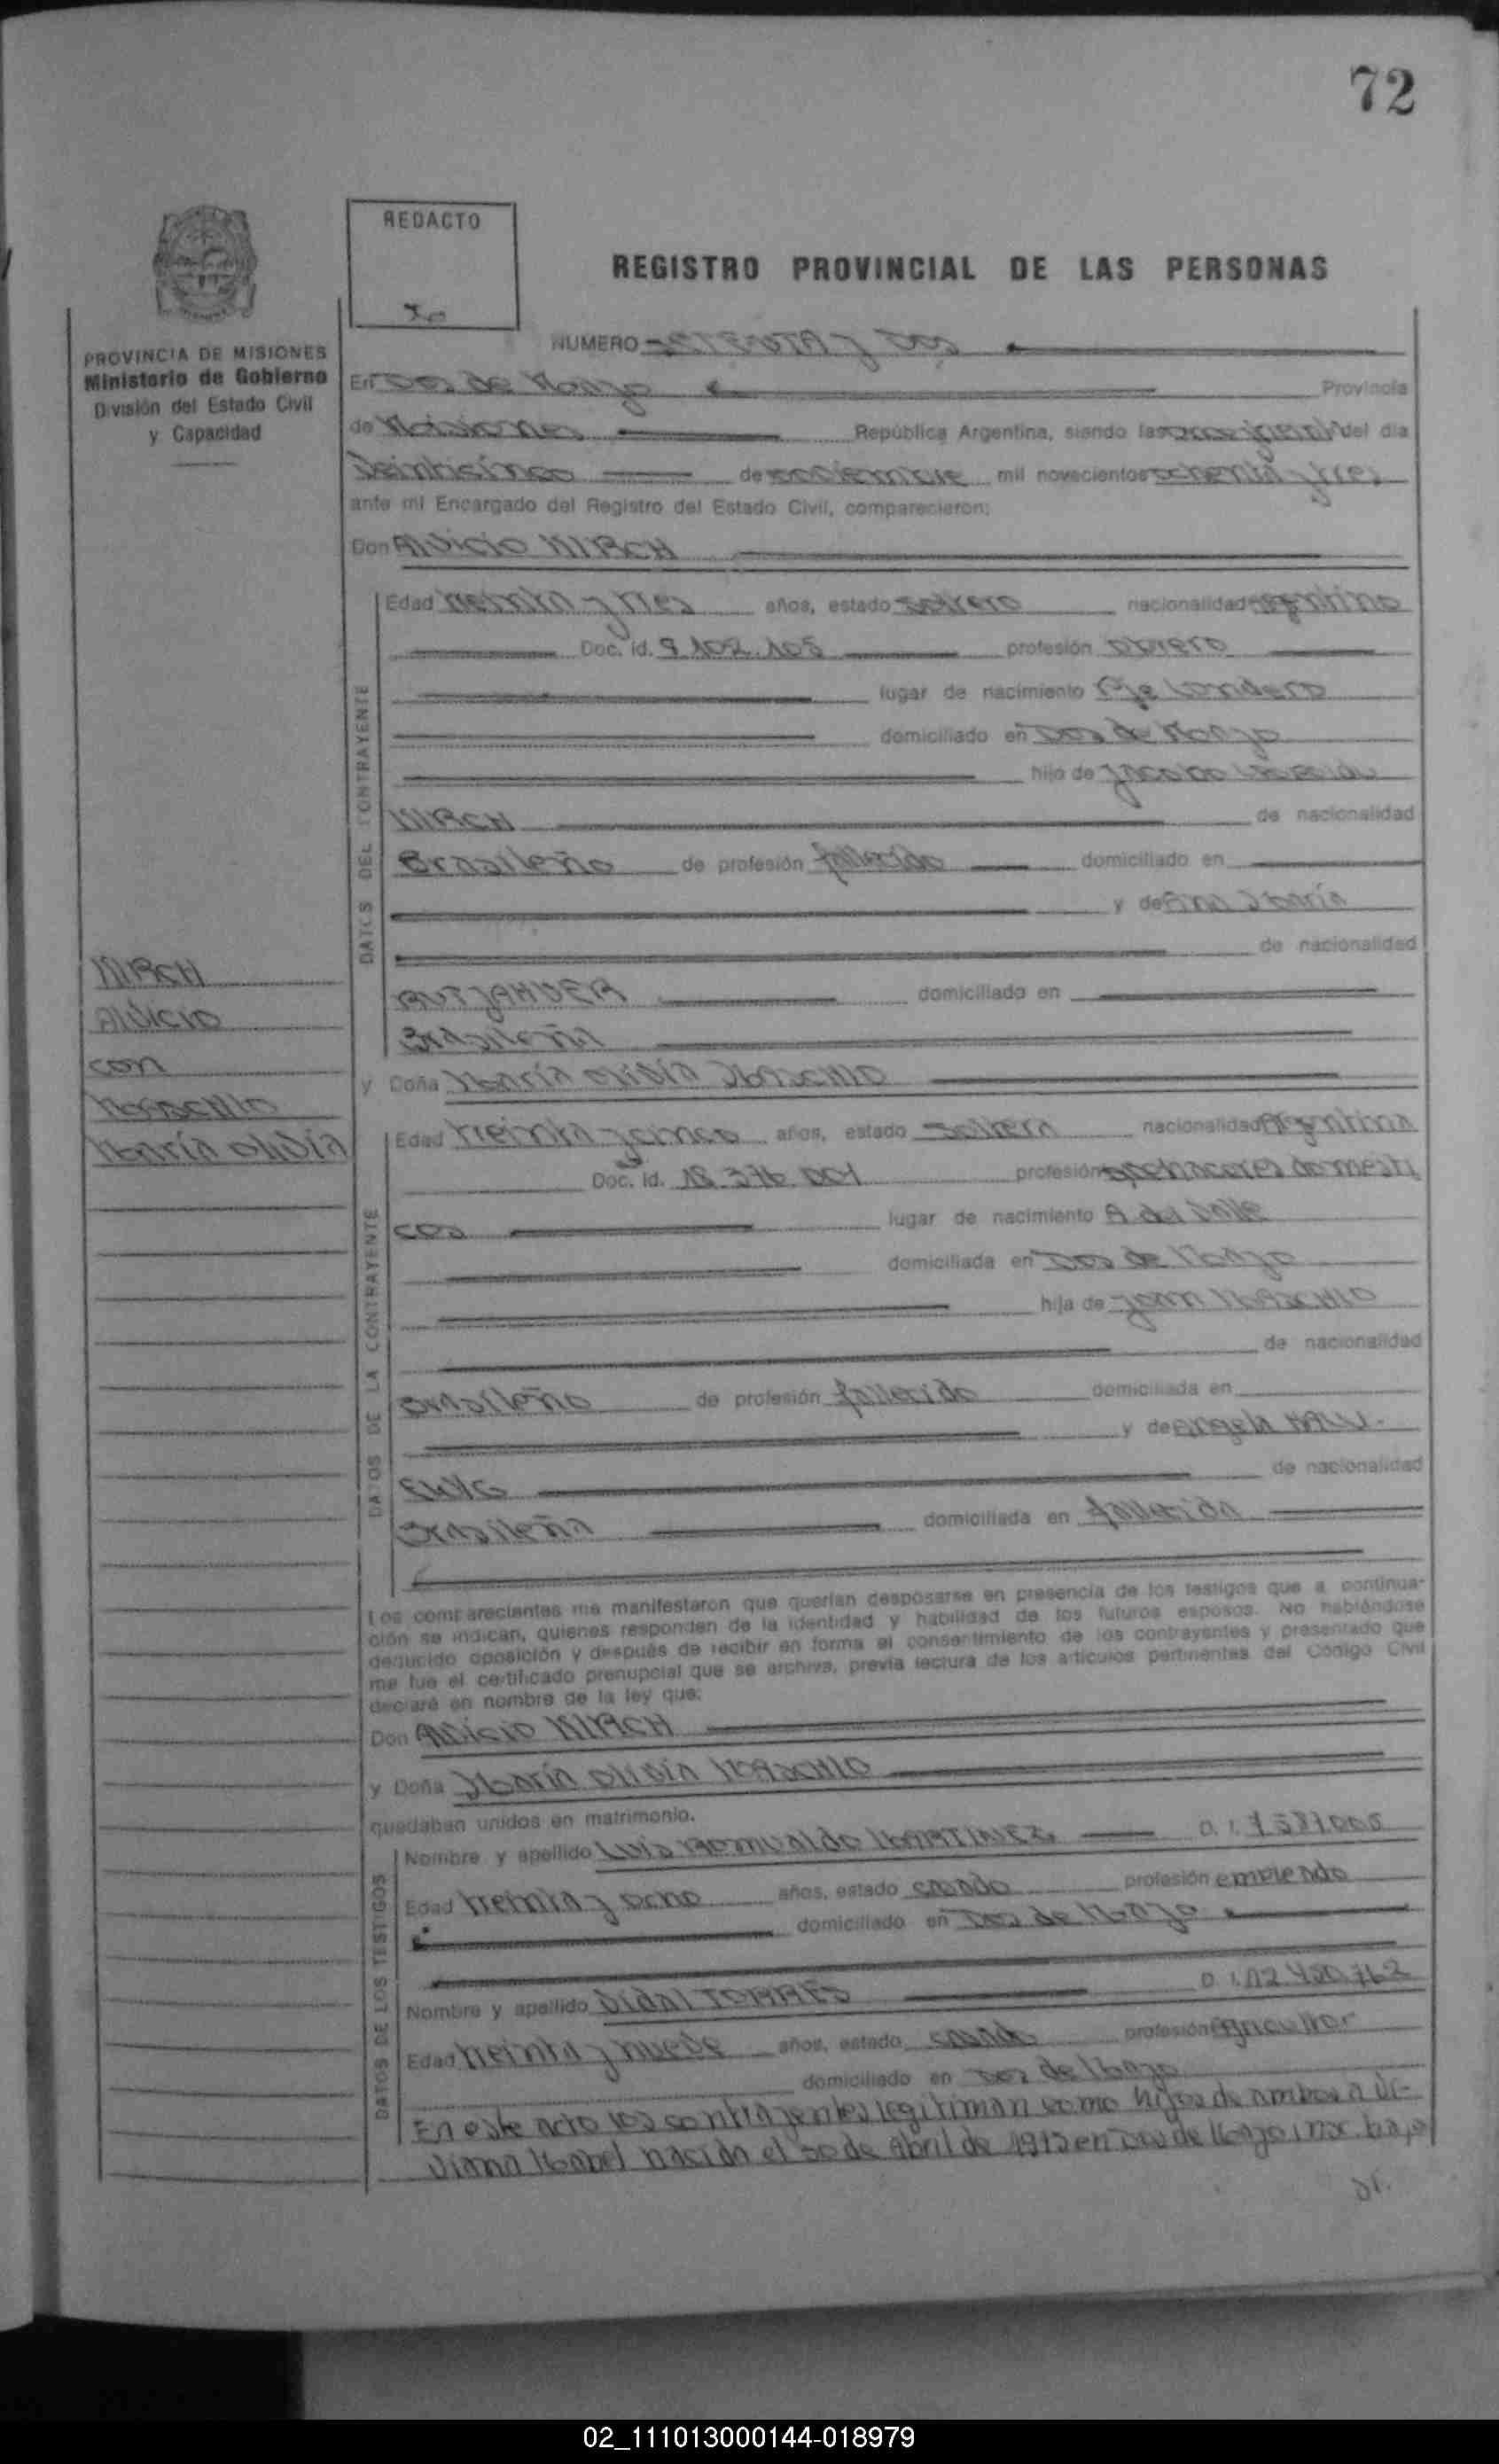 72
REDACTO
REGISTRO PROVINCIAL DE LAS PERSONAS
PROVINCIA DE MISIONES
Ministerio de Gobierno
División del Estado Civil
y Capacidad
NUMERO SETENTA y DOS
En Dos de Mayo Provincia
de Misiones República Argentina, siendo las once del día
Veinticinco de noviembre mil novecientos ochenta y tres
ante mi Encargado del Registro del Estado Civil, comparecieron:
Don Alvicio KIRCH
DATOS DEL CONTRAYENTE
Edad treinta y tres años, estado soltero nacionalidad Argentino
Doc. id. 8.102.105 profesión obrero
lugar de nacimiento Londero
domiciliado en Dos de Mayo
hijo de Jacobo
KIRCH de nacionalidad
Brasileño de profesión fallecido domiciliado en
y de Ana María
de nacionalidad
domiciliado en
Brasileña
KIRCH
Alvicio
con
MASCHIO
María Olivia
y Doña María Olivia MASCHIO
DATOS DE LA CONTRAYENTE
Edad treinta y cinco años, estado soltera nacionalidad Argentina
Doc. Id. 18.376.001 profesión quehaceres domésti
cos lugar de nacimiento A. del Valle
domiciliada en Dos de Mayo
hija de Juan MASCHIO
de nacionalidad
Brasileño de profesión fallecido domiciliada en
y de Angela
de nacionalidad
Brasileña domiciliada en fallecida
Los comparecientes me manifestaron que querían desposarse en presencia de los testigos que a continua-
ción se indican, quienes responden de la identidad y habilidad de los futuros esposos. No habiéndose
deducido oposición y después de recibir en forma el consentimiento de los contrayentes y presentado que
me fue el certificado prenupcial que se archiva, previa lectura de los artículos pertinentes del Código Civil
declaré en nombre de la ley que:
Don Alvicio KIRCH
y Doña María Olivia MASCHIO
quedaban unidos en matrimonio.
DATOS DE LOS TESTIGOS
Nombre y apellido Luis Romualdo MARTINEZ D. I. 7.581.006
Edad treinta y ocho años, estado casado profesión empleado
domiciliado en Dos de Mayo
Nombre y apellido Vidal TORRES D. I. 12.450.762
Edad treinta y nueve años, estado casado profesión Agricultor
domiciliado en Dos de Mayo
En este acto los contrayentes legitiman como hijos de ambos a Vi-
viana Mabel nacida el 30 de Abril de 1975 en Dos de Mayo, insc. bajo
02_111013000144-018979